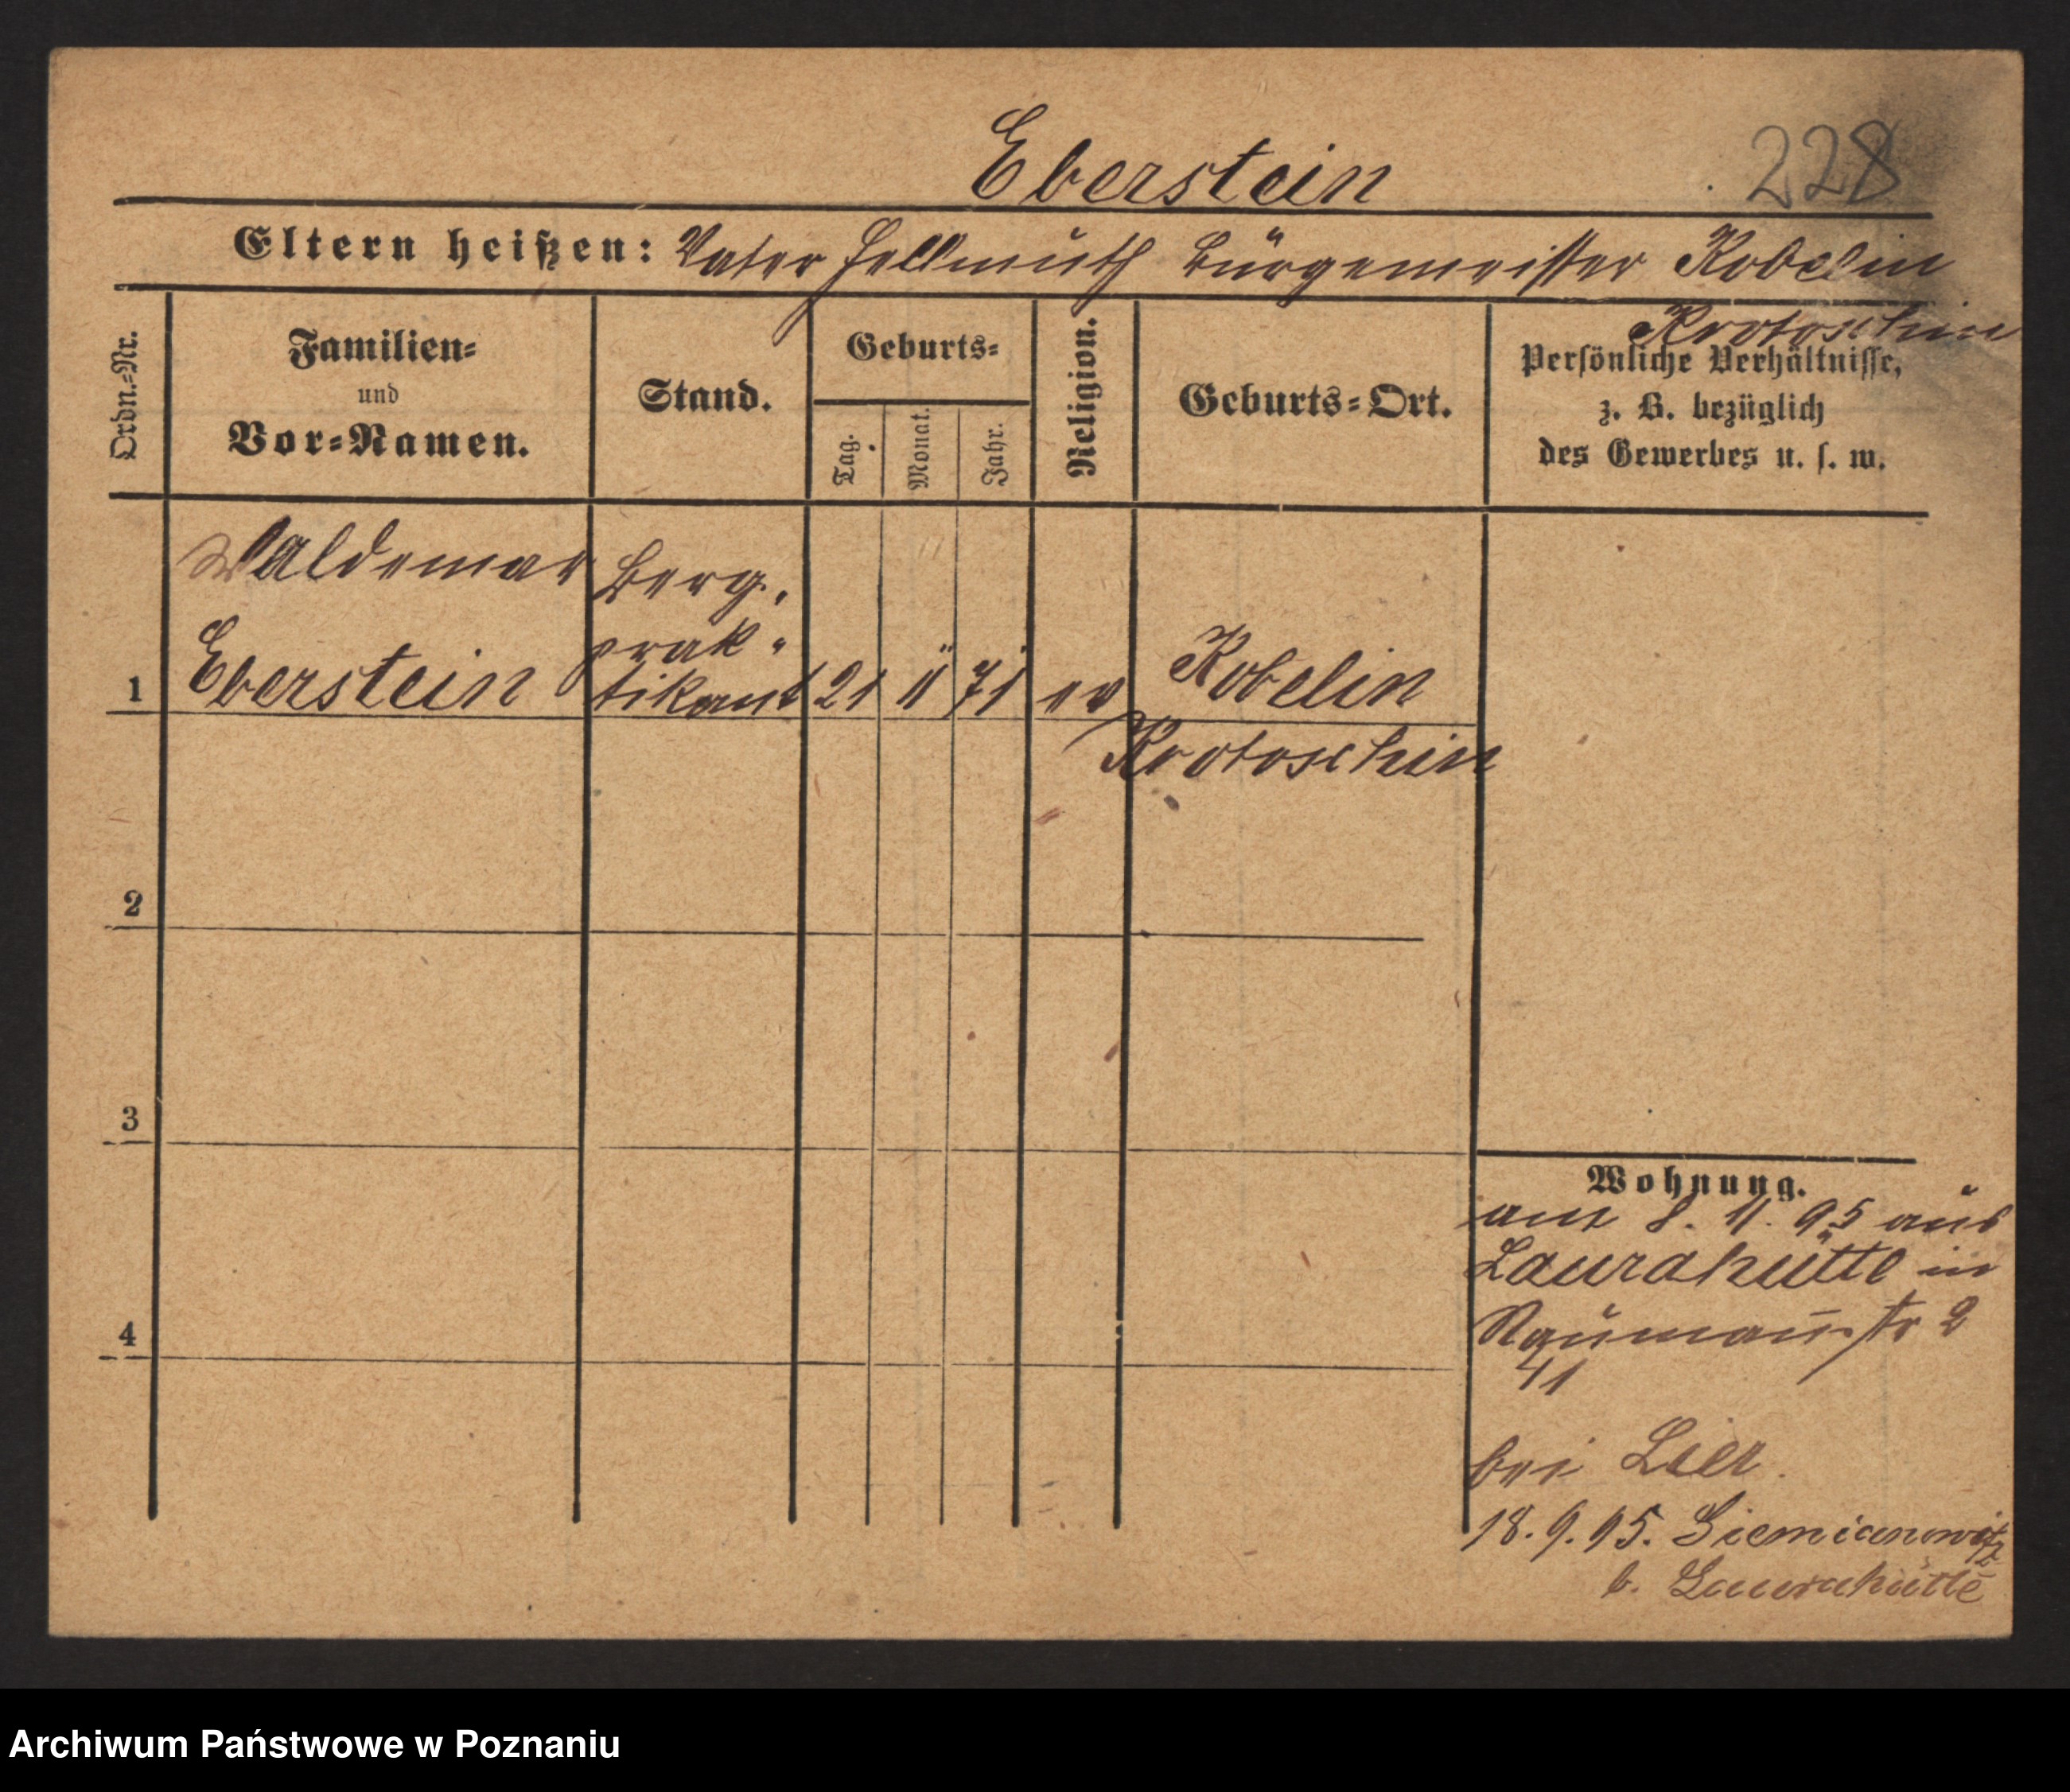 Eberstein
228
Eltern heißen: Vater Hellmuth Bürgemeister Kobelin
Krotoschin
Ordn.-Nr.
Familien-
und
Vor-Namen.
Stand.
Geburts-
Tag.
Monat.
Jahr.
Religion.
Geburts-Ort.
Persönliche Verhältnisse,
z. B. bezüglich
des Gewerbes u. s. w.
Waldemar
Eberstein
Berg.
prak-
tikant
1
21 11 71 ev
Kobelin
Krotoschin
2
3
4
Wohnung.
am 8. 11. 95 aus
Laurahütte in
Naumannstr 2
41
bei
18. 9. 95. Siemianowitz
b. Laurahütte
Archiwum Państwowe w Poznaniu